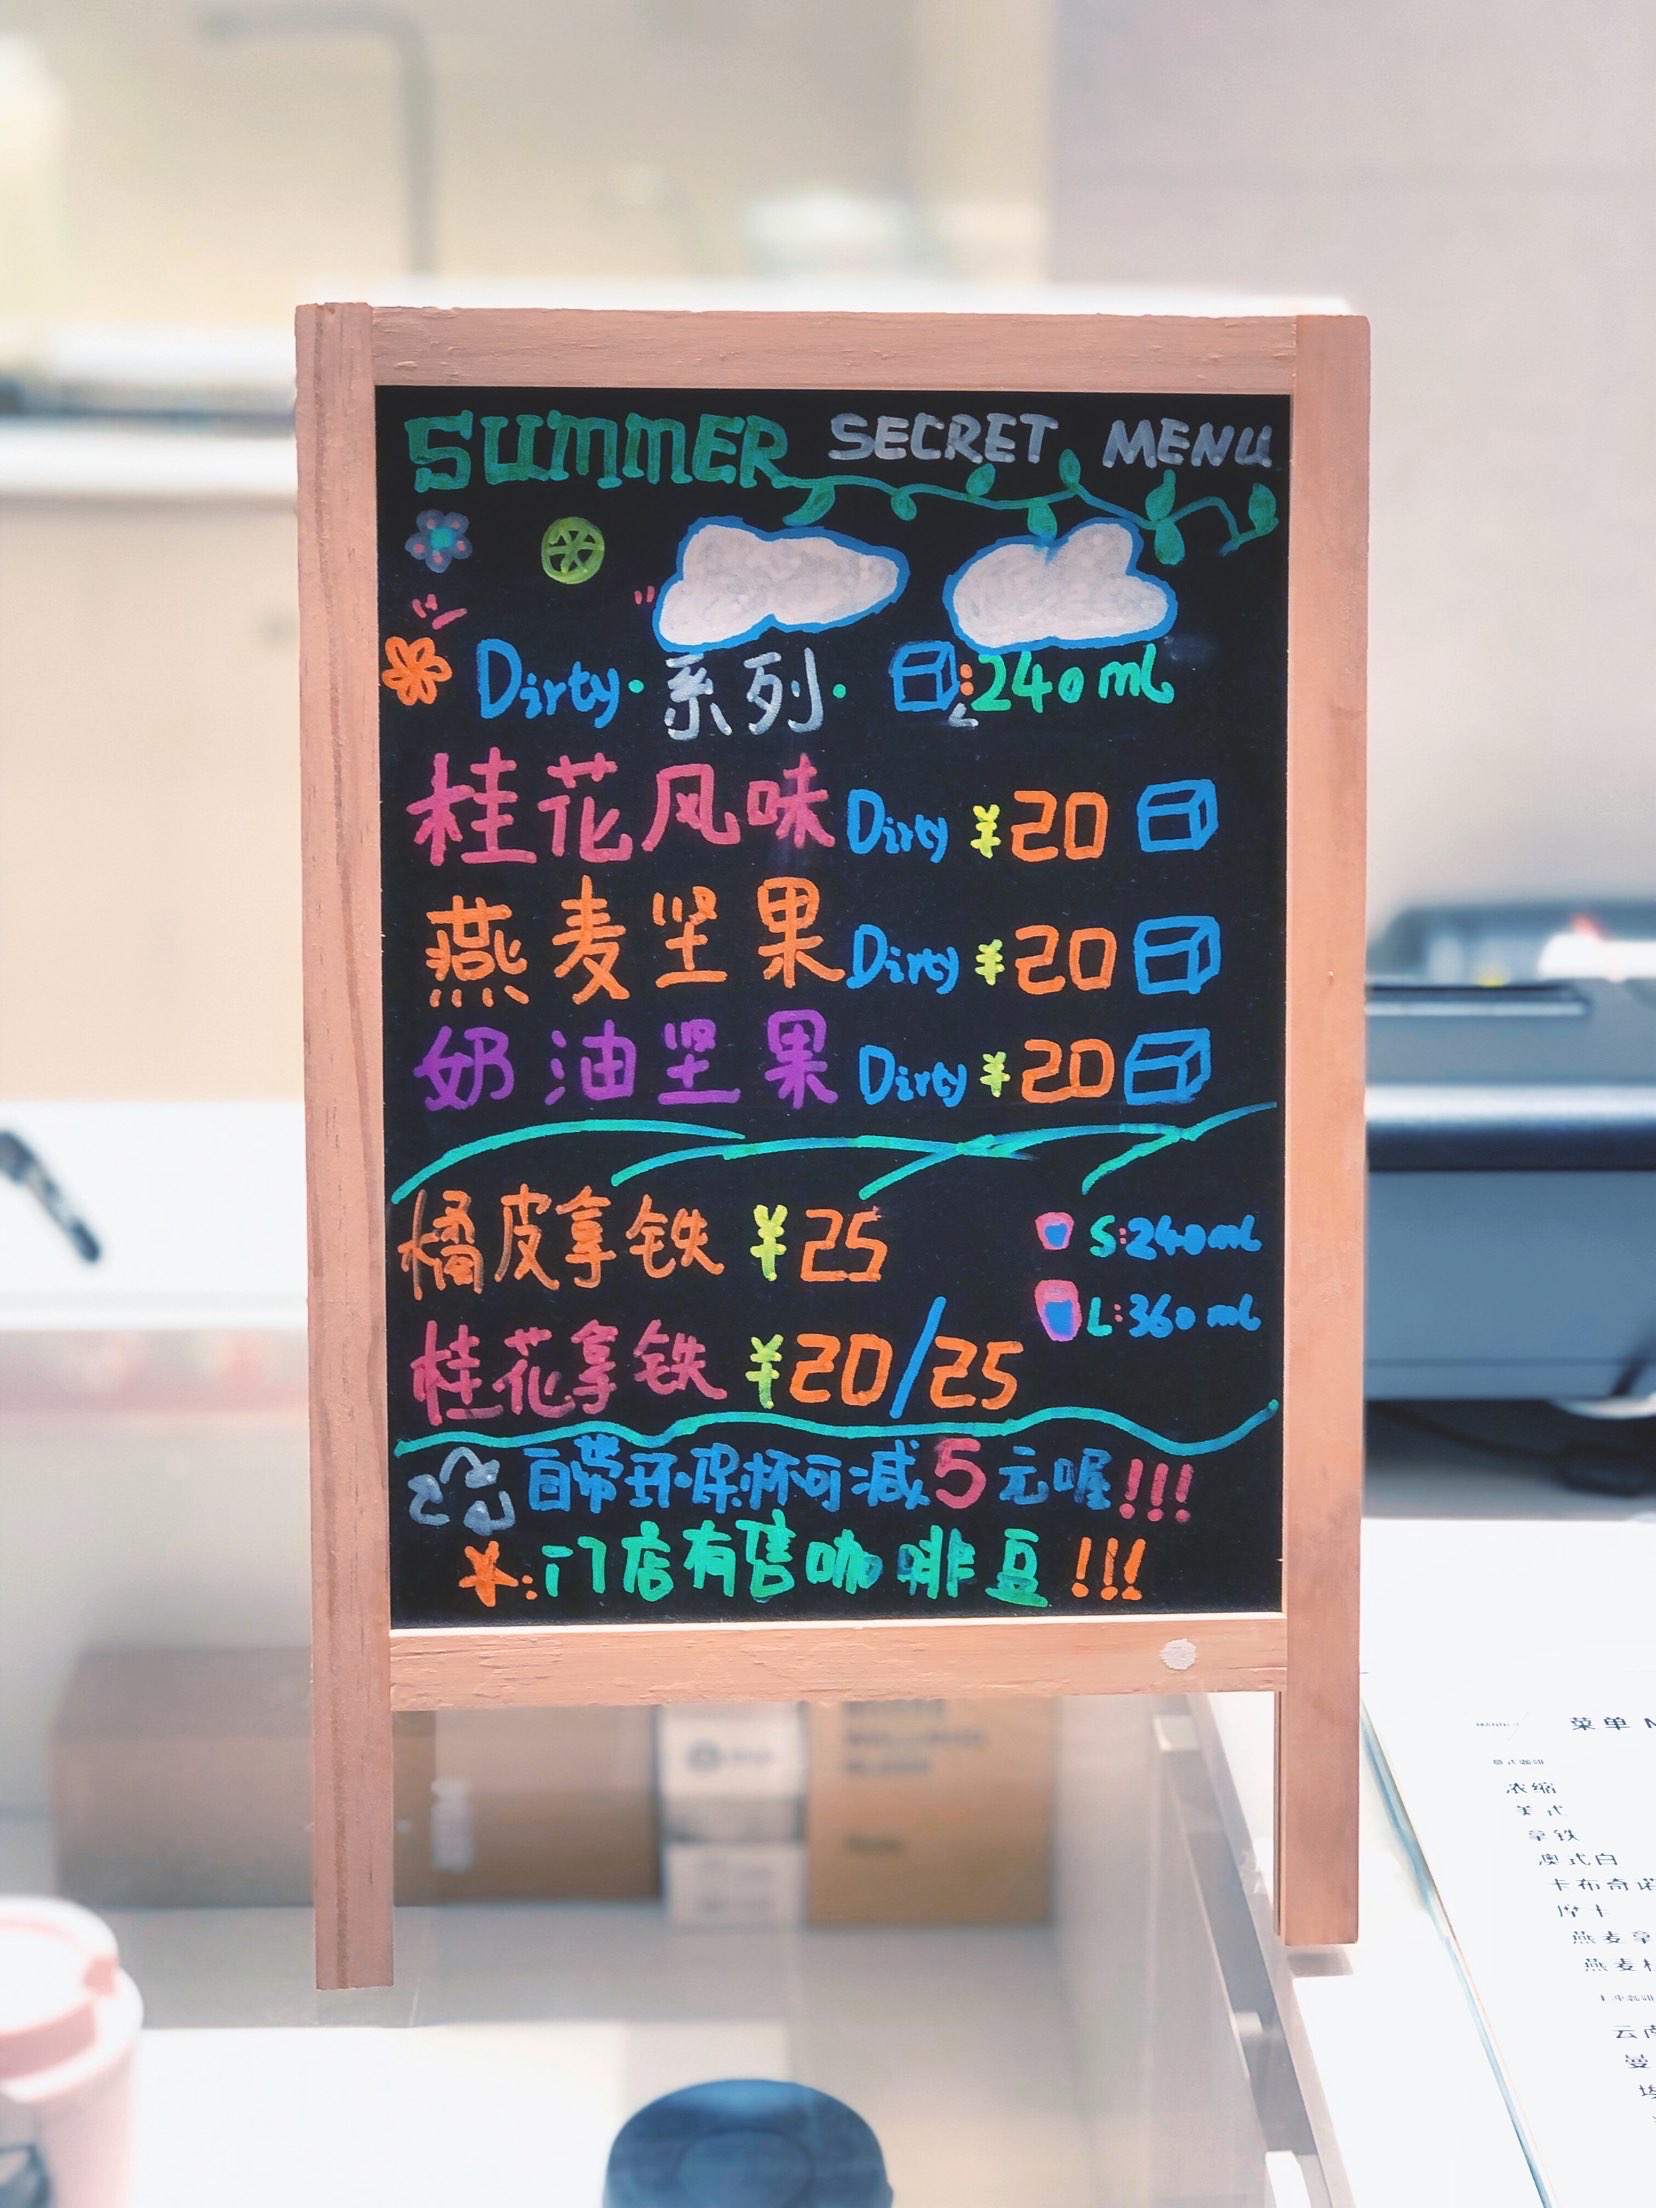 SUMMER SECRET MENU
Dirty·系列· :240ml
桂花风味Dirty ¥20
燕麦坚果Dirty ¥20
奶油坚果Dirty ¥20
橘皮拿铁 ¥25
S:240ml
L:360ml
桂花拿铁 ¥20/25
自带环保杯可减5元喔!!!
门店有售咖啡豆!!!
菜单
浓缩
美式
拿铁
澳式白
卡布奇诺
摩卡
燕麦拿
燕麦
云南
曼
埃